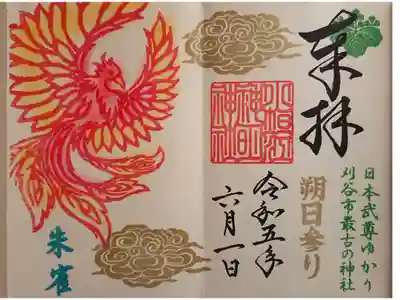 奉拝
日本武尊ゆかり
刈谷市最古の神社
朔日参り
令和五年
六月一日
小垣江
神明
神社
朱雀